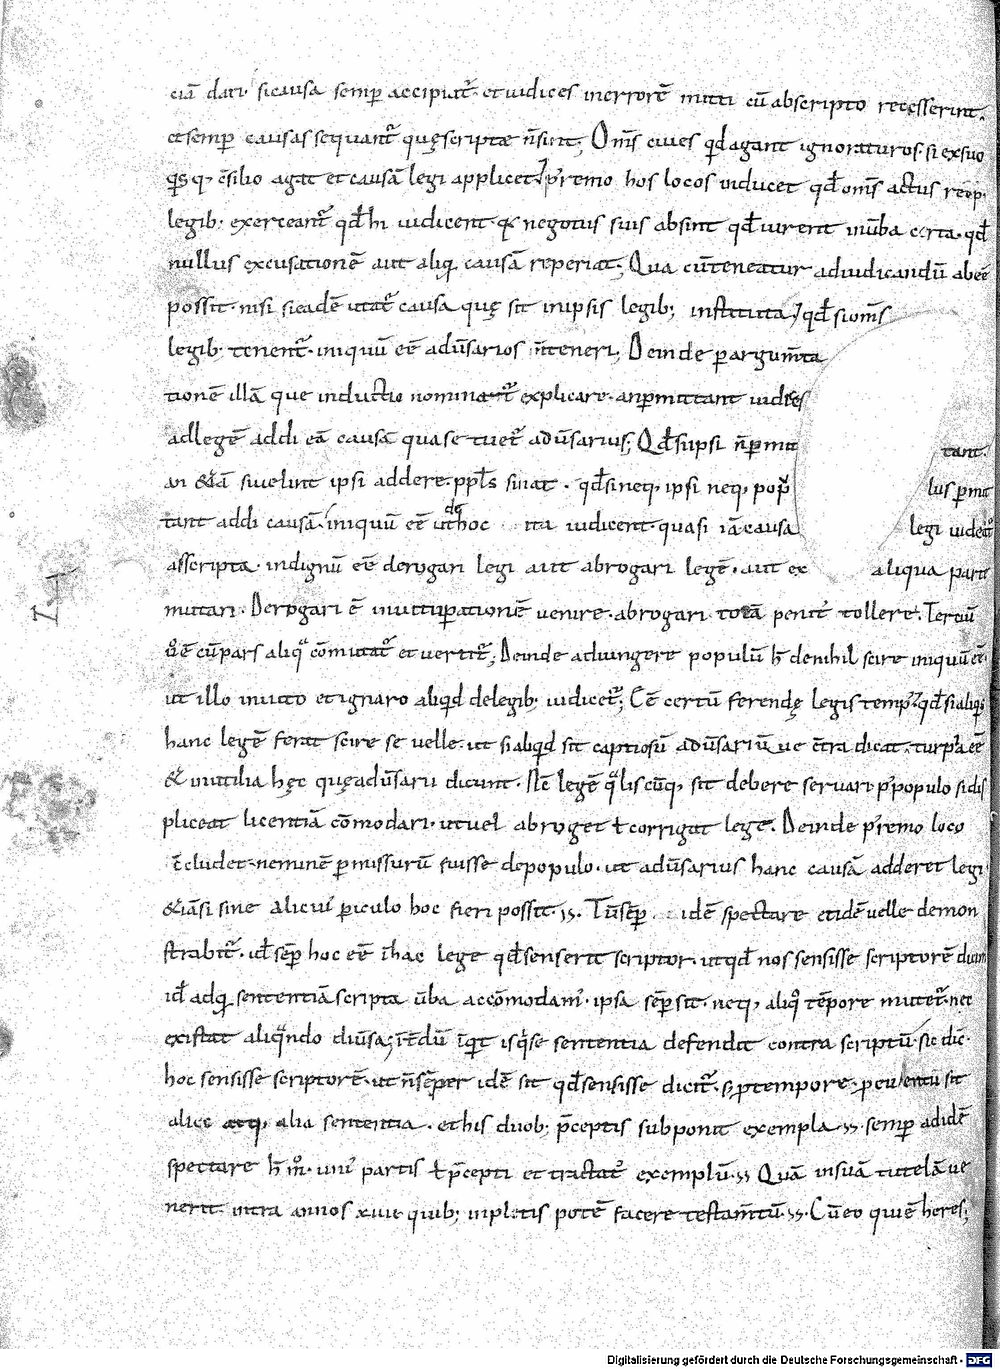 ciā dari· si causa semp̄ accipiat̄· et iudices in errorē mitti cū ab scripto recesserint·
et semp̄ causas sequant̄ quę scriptæ n̄ sint; Om̄s ciues qđ agant ignoraturos· si ex suo
q̄sq, c̄silio agat et causā legi applicet· p̄remo hos locos inducet qđ om̄s actus reip·
legib; exerceant̄ qđ hi iudicent· & negotiis suis absint qđ iurent in ūba certa· qđ
nullus excusationē aut aliq̄ causā reperiat; Qua c̄teneatur ad iudicandū abeē
possit· nisi si eadē utat̄ causa quę sit in ipsis legib; instituta; qđ si om̄s
legib; tenent̄· iniquū eē adūsarios n̄ teneri; Deinde p argum̄ta
tionē illā que inductio nominat̄ explicare· an p̄mittant iudices
ad legē addi eā causā qua se tuet̄ adūsarius; Qđ si ipsi n̄ p̄mit tant·
an & iā si uelint ipsi addere· ppl̄s sinat· qđ si neq, ipsi neq, pop lus p̄mit
tant addi causā· iniquū eē ut de hoc ita iudicent· quasi iā causa legi uidet̄
asscripta· indignū eē derogari legi aut abrogari legē· aut ex aliqua parte
mutari· Derogari ē in uituperationē uenire· abrogari totā penit̄ tollere· Terciū
u̓ ē cū pars aliq̄ cōmutat̄ et uertit̄; Deinde adiungere populū h̄ de nihil scire iniquū eē·
ut illo inuito et ignaro aliqđ de legib; iudicet̄; Cē certū ferendę legis temp̄· qđ si aliq̄s
hanc legē ferat scire se uelle· ut si aliqđ sit captiosū adūsariū ue c̄tra dicat· turpia eē
& inutilia hęc quę adūsarii dicunt· Nc̄ legē q̄liscūq, sit debere seruari p̄ populo si dis
pliceat licentiā cōmodari· ut uel abroget ł corrigat legē· Deinde p̄remo loco
c̄cludet· neminē p̄missurū fuisse de populo· ut adūsarius hanc causā adderet legi·
& iā si sine alicui̓ p̄iculo hoc fieri possit· Tū sēp idē spectare et idē uelle demon
strabit̄· id sēp hoc eē in hac lege qđ senserit scriptor· ut qđ nos sensisse scriptorē
id ad q̄ sententiā scripta ūba accōmodam̓· ipsa sēp sit· neq, aliq̄ tēpore mutet̄· nec
existat aliq̄ndo diūsa; īt̄dū īq̄t is q̄ se sententia defendit contra scriptū· sic dic̄·
hoc sensisse scriptorē· ut n̄ sēper idē sit qđ sensisse dicit̄· s; p tempore· p euentu sit
alia sententia· et his duob; p̄ceptis subponit exempla· semp̄ ad idē
spectare h̄ m̊· uni̓ partis ł p̄cepti et tractat̓ exemplū· Quā in suā tutelā ue
nerit· intra annos xiiii· quib; inpletis potē facere testam̄tū· Cū eo qui ē heres;